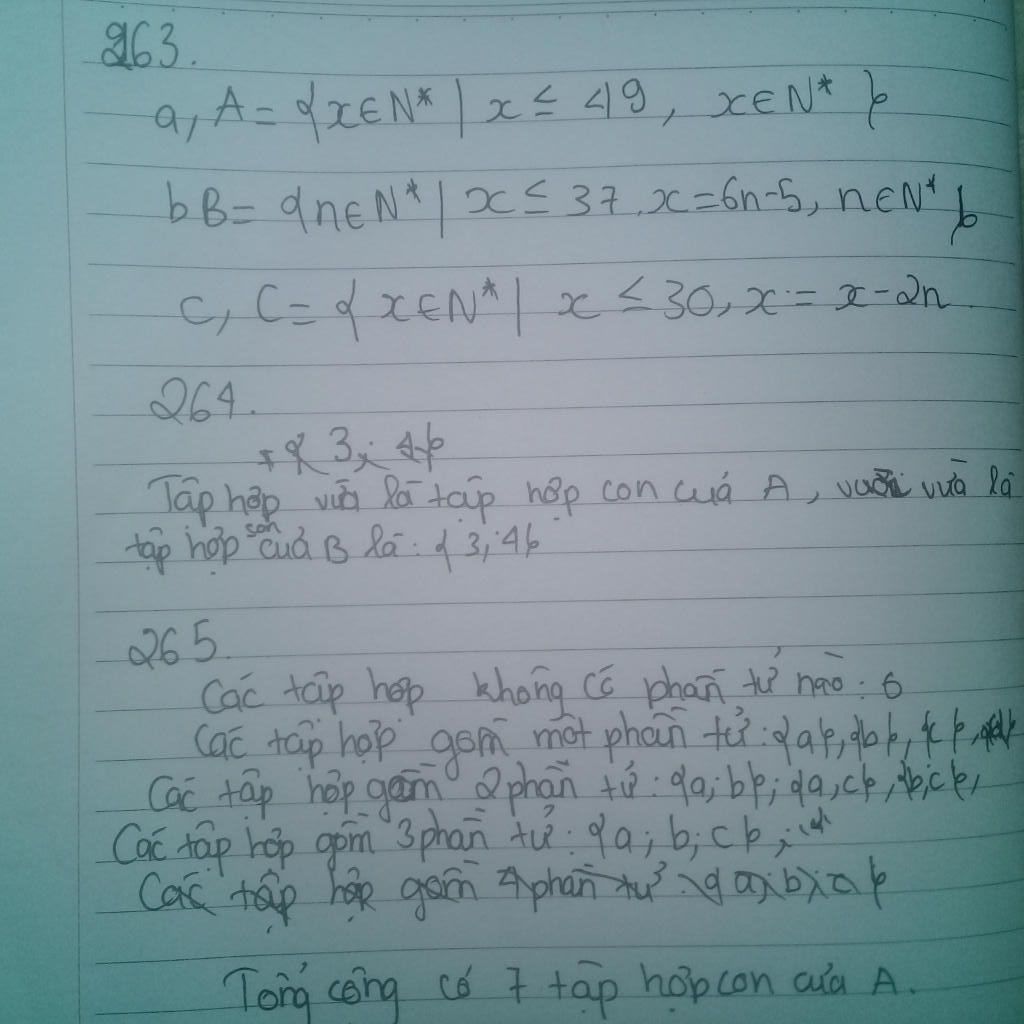 263.
a, A = { x ∈ N* | x ≤ 49, x ∈ N* }
b B = { n ∈ N* | x ≤ 37, x = 6n-5, n ∈ N* }
c, C = { x ∈ N* | x ≤ 30, x = x-2n
264.
{ 3; 4 }
Tập hợp vừa là tập hợp con cuả A, vừa là
tập hợp con cuả B là: { 3; 4 }
265.
Các tập hợp không có phần tử nào: 6
Các tập hợp gồm một phần tử: {a}, {b}, {c},
Các tập hợp gồm 2 phần tử: {a; b}; {a, c}, {b; c},
Các tập hợp gồm 3 phần tử: {a; b; c};
Các tập hợp gồm 4 phần tử: { a; b;
Tổng cộng có 7 tập hợp con của A.